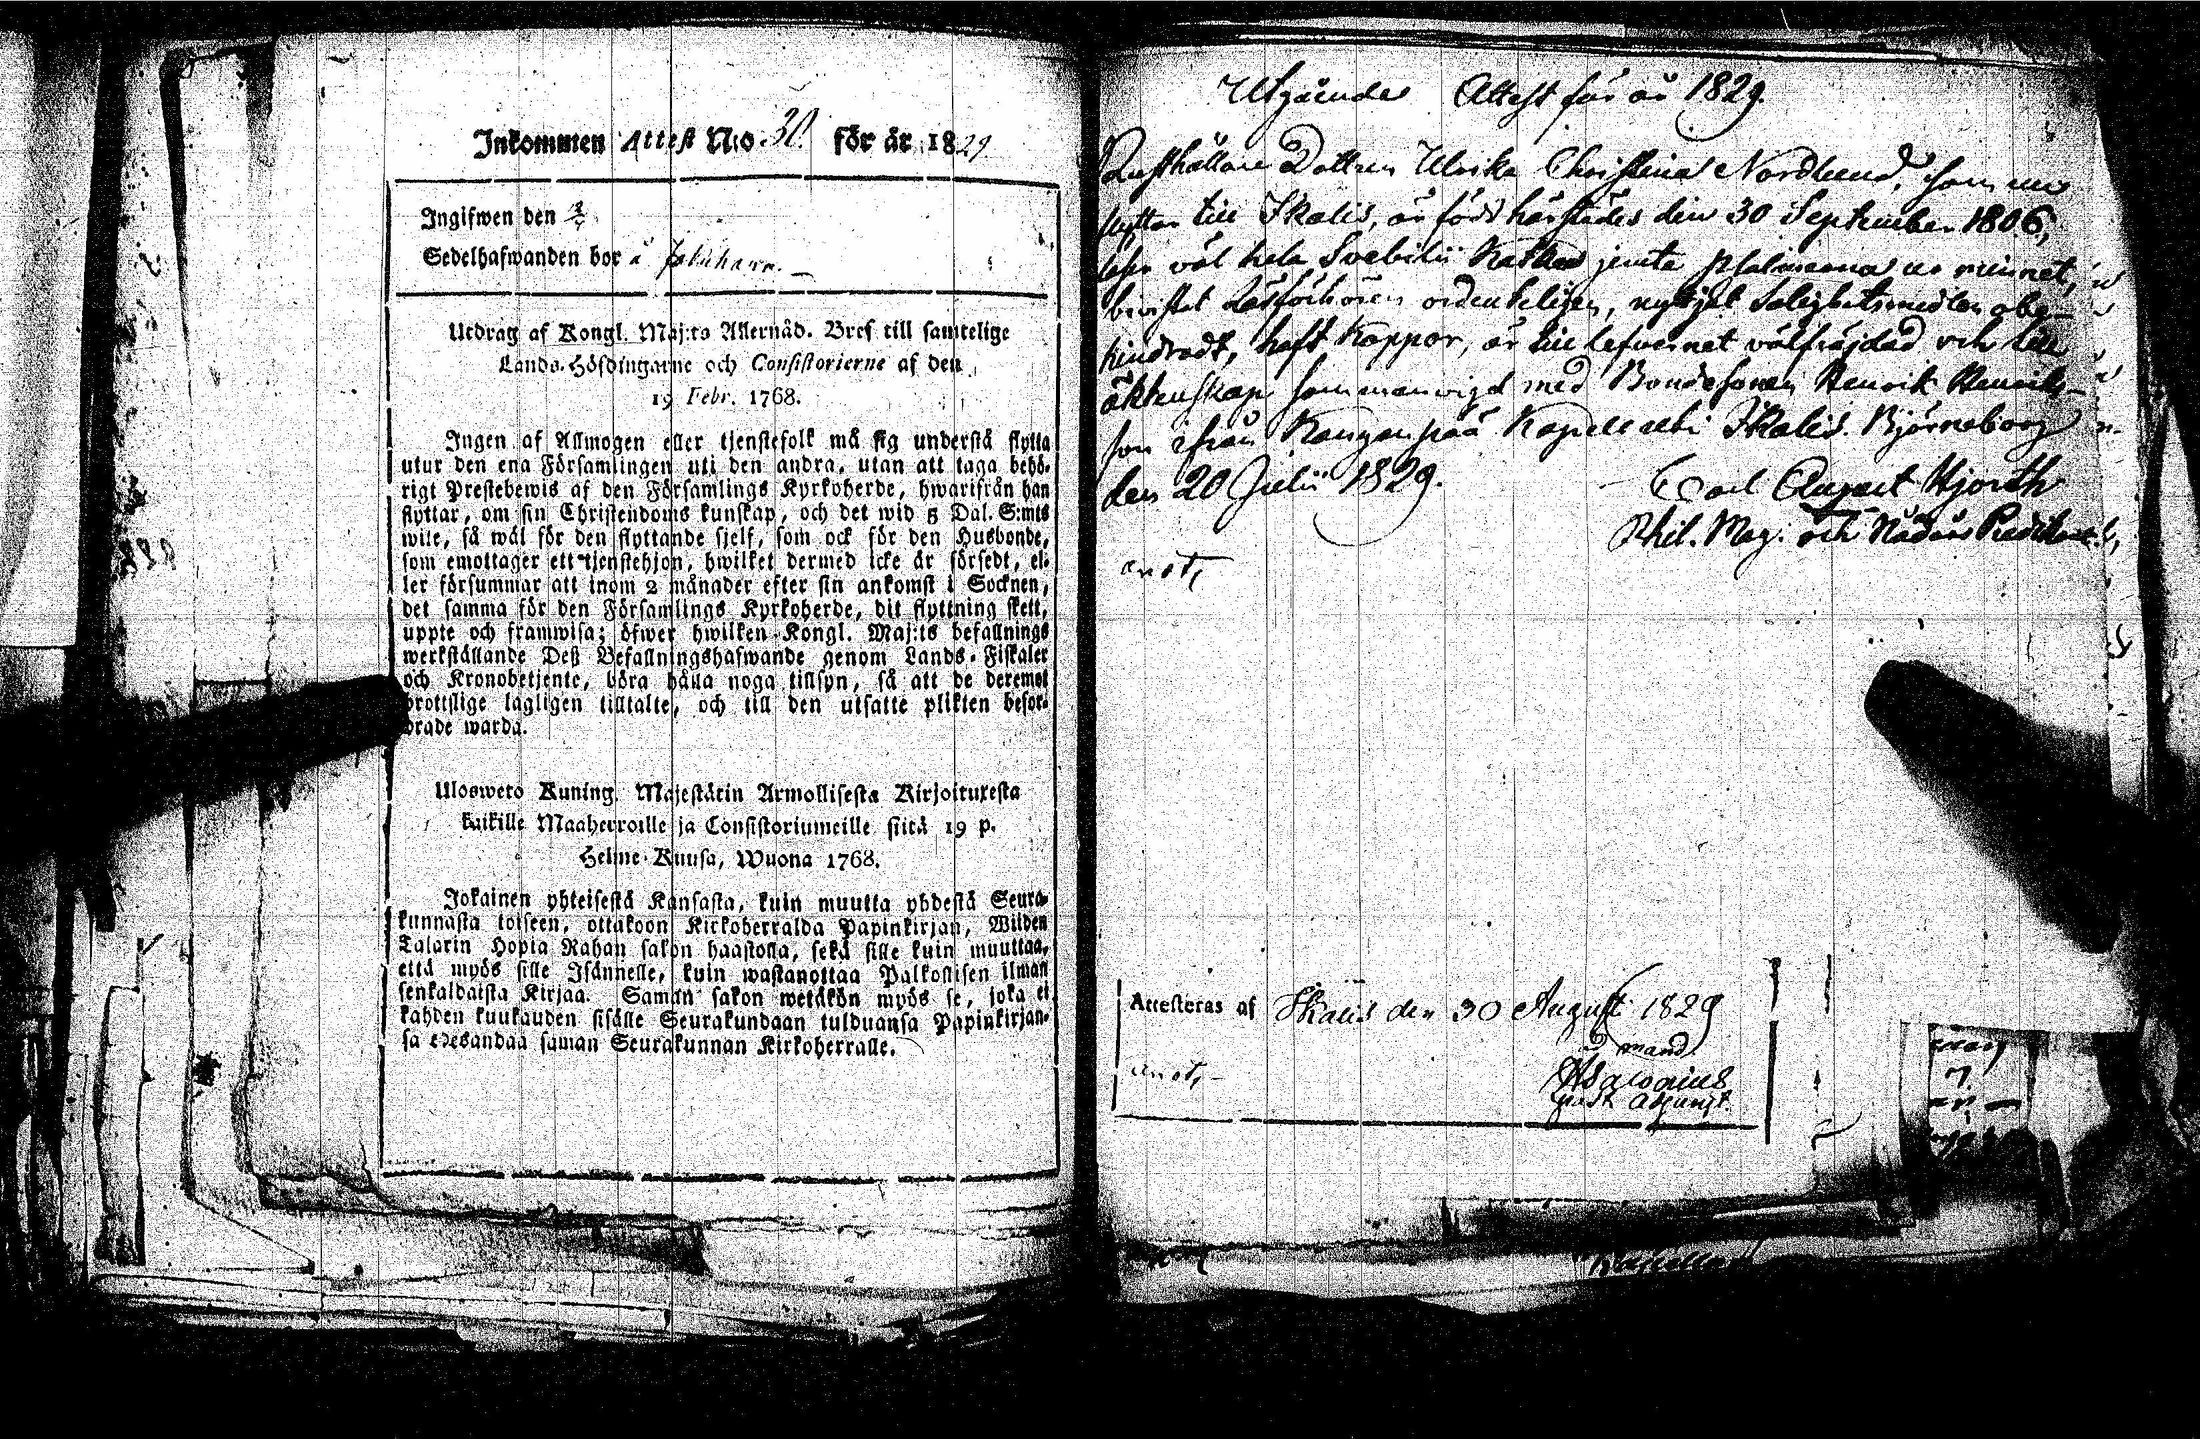 Inkommen Attest No 30. för år 1829
Ingifwen den
Sedelhafwanden bor å
Utdrag af Kongl. Maj:ts Allernåd. Bref till samtelige
Lands-Höfdingarne och Consistorierne af den
19 Febr. 1768.
Ingen af Allmogen eller tjenstefolk må sig understå flytta
utur den ena Församlingen uti den andra, utan att taga behö-
rigt Prestebewis af den Församlings Kyrkoherde, hwarifrån han
flyttar, om sin Christendoms kunskap, och det wid 5 Dal. S:mts
wite, så wäl för den flyttande sjelf, som ock för den Husbonde,
som emottager ett tjenstehjon, hwilket dermed icke är försedt, el-
ler försummar att inom 2 månader efter sin ankomst i Socknen,
det samma för den Församlings Kyrkoherde, dit flyttning skett,
uppte och framwisa; öfwer hwilken Kongl. Maj:ts befallnings
werkställande Deß Befallningshafwande genom Lands-Fiskaler
och Kronobetjente, böra hålla noga tillsyn, så att de deremot
brottslige lagligen tilltalte, och till den utsatte plikten befor-
drade warda.
Ulosweto Kuning. Majestätin Armollisesta Kirjoituxesta
kaikille Maaherroille ja Consistoriumeille siitä 19 p.
Helme-Kuusa, Wuona 1768.
Jokainen yhteisestä Kansasta, kuin muutta yhdestä Seura-
kunnasta toiseen, ottakoon Kirkoherralda Papinkirjan, Wiiden
Talarin Hopia Rahan sakon haastolla, sekä sille kuin muuttaa,
että myös sille Isännelle, kuin wastanottaa Palkollisen ilman
senkaldaista Kirjaa. Samän sakon wetäkön myös se, joka ei
kahden kuukauden sisälle Seurakundaan tulduansa Papinkirjan-
sa edesandaa saman Seurakunnan Kirkoherralle.
Utgående Attest för år 1829.
Rusthållare Dottren Ulrika Christina Nordlund, som nu
flyttar till Ikalis, är född härstädes den 30 September 1806,
läser väl hela Svebilii Kateches jemte Psalmerna ur minnet,
bevistat Läsförhören ordenteligen, nyttjat Salighetsmedlen obe-
hindradt, haft Koppor, är till lefvernet välfräjdad och till
äktenskap sammanvigd med Bondesonen Henrik Henriks-
son ifrån Kangenpää Kapell utbi Ikalis. Björneborg
den 20 Julii 1829.
Carl August Hjorth
Phil. Mag. och Nådårs Predikant.
anot,
Attesteras af Ikalis den 30 August 1829
mand.
anot,
Adjunct.